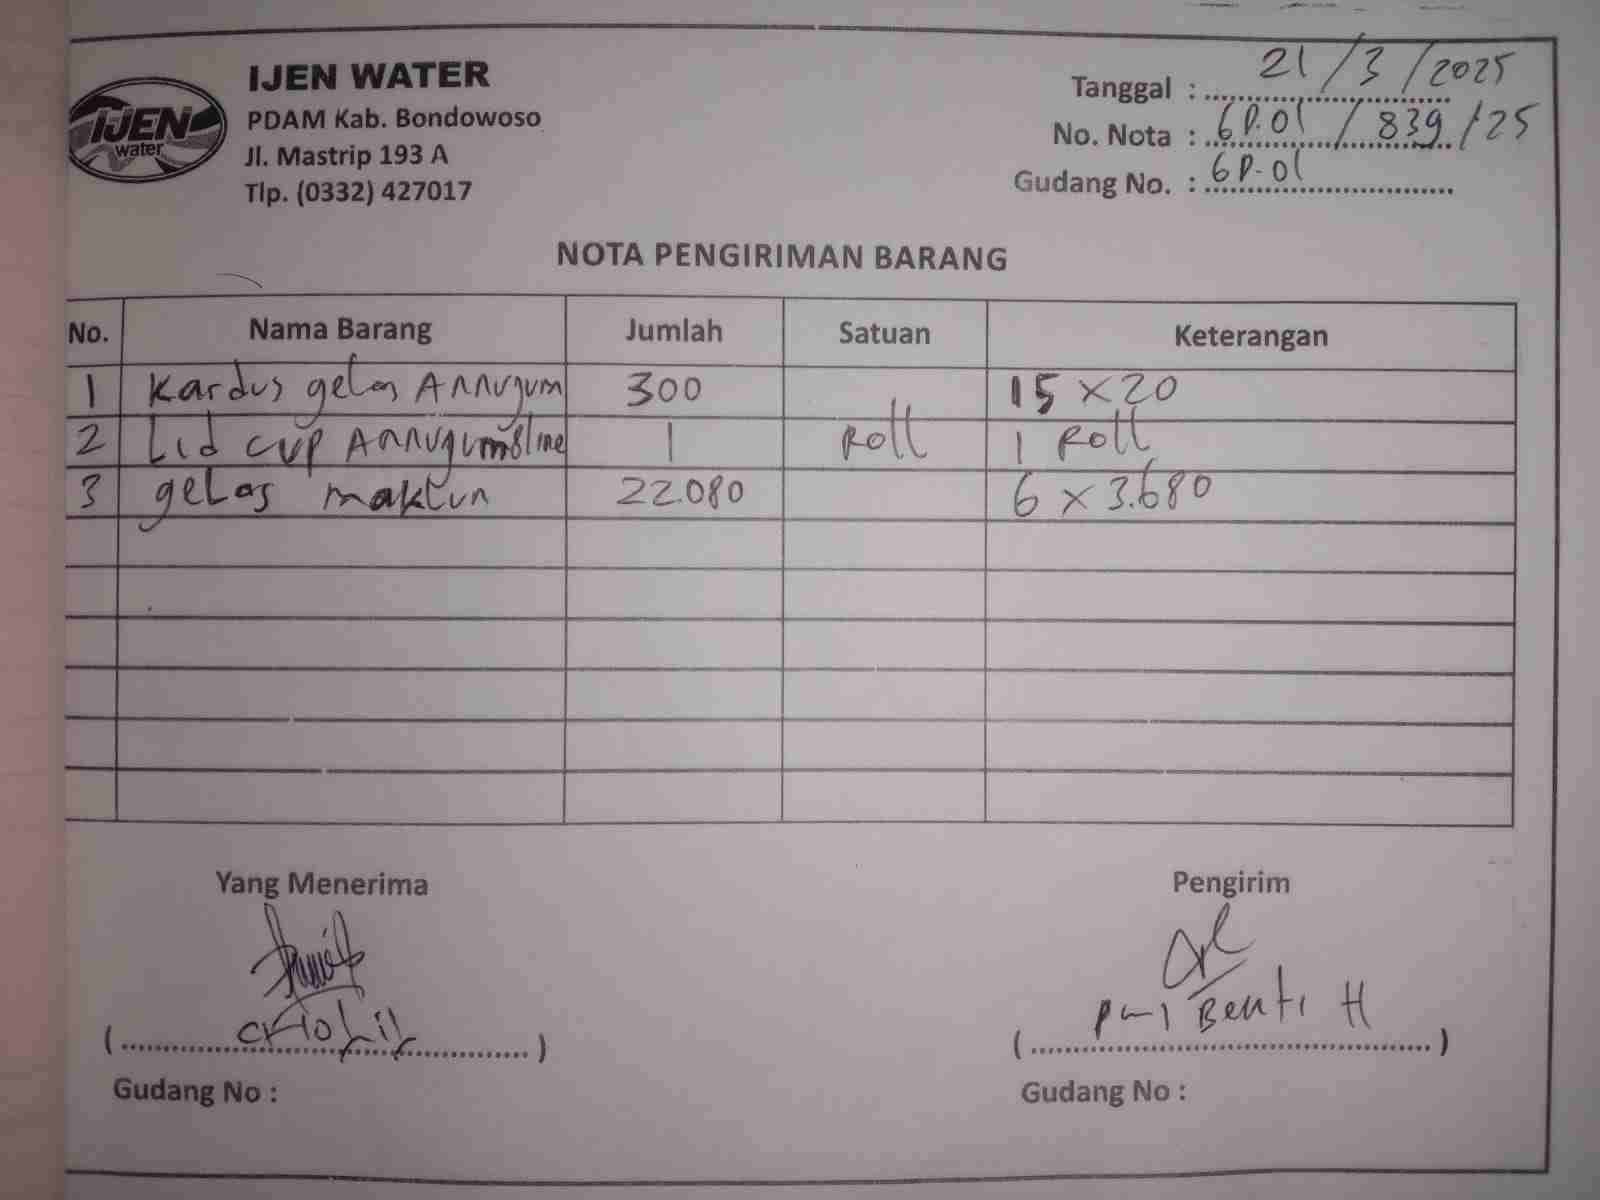 IJEN WATER
PDAM Kab. Bondowoso
Jl. Mastrip 193 A
Tlp. (0332) 427017
IJEN
water
Tanggal : 21/3/2025
No. Nota : GD.01/839/25
Gudang No. : GD-01
NOTA PENGIRIMAN BARANG
No. Nama Barang Jumlah Satuan Keterangan
1 Kardus gelas Annuqum 300 15 x 20
2 Lid cup Annuqum 8 line 1 Roll 1 Roll
3 gelas maklun 22.080 6 x 3.680
Yang Menerima Pengirim
Benti H
Gudang No : Gudang No :